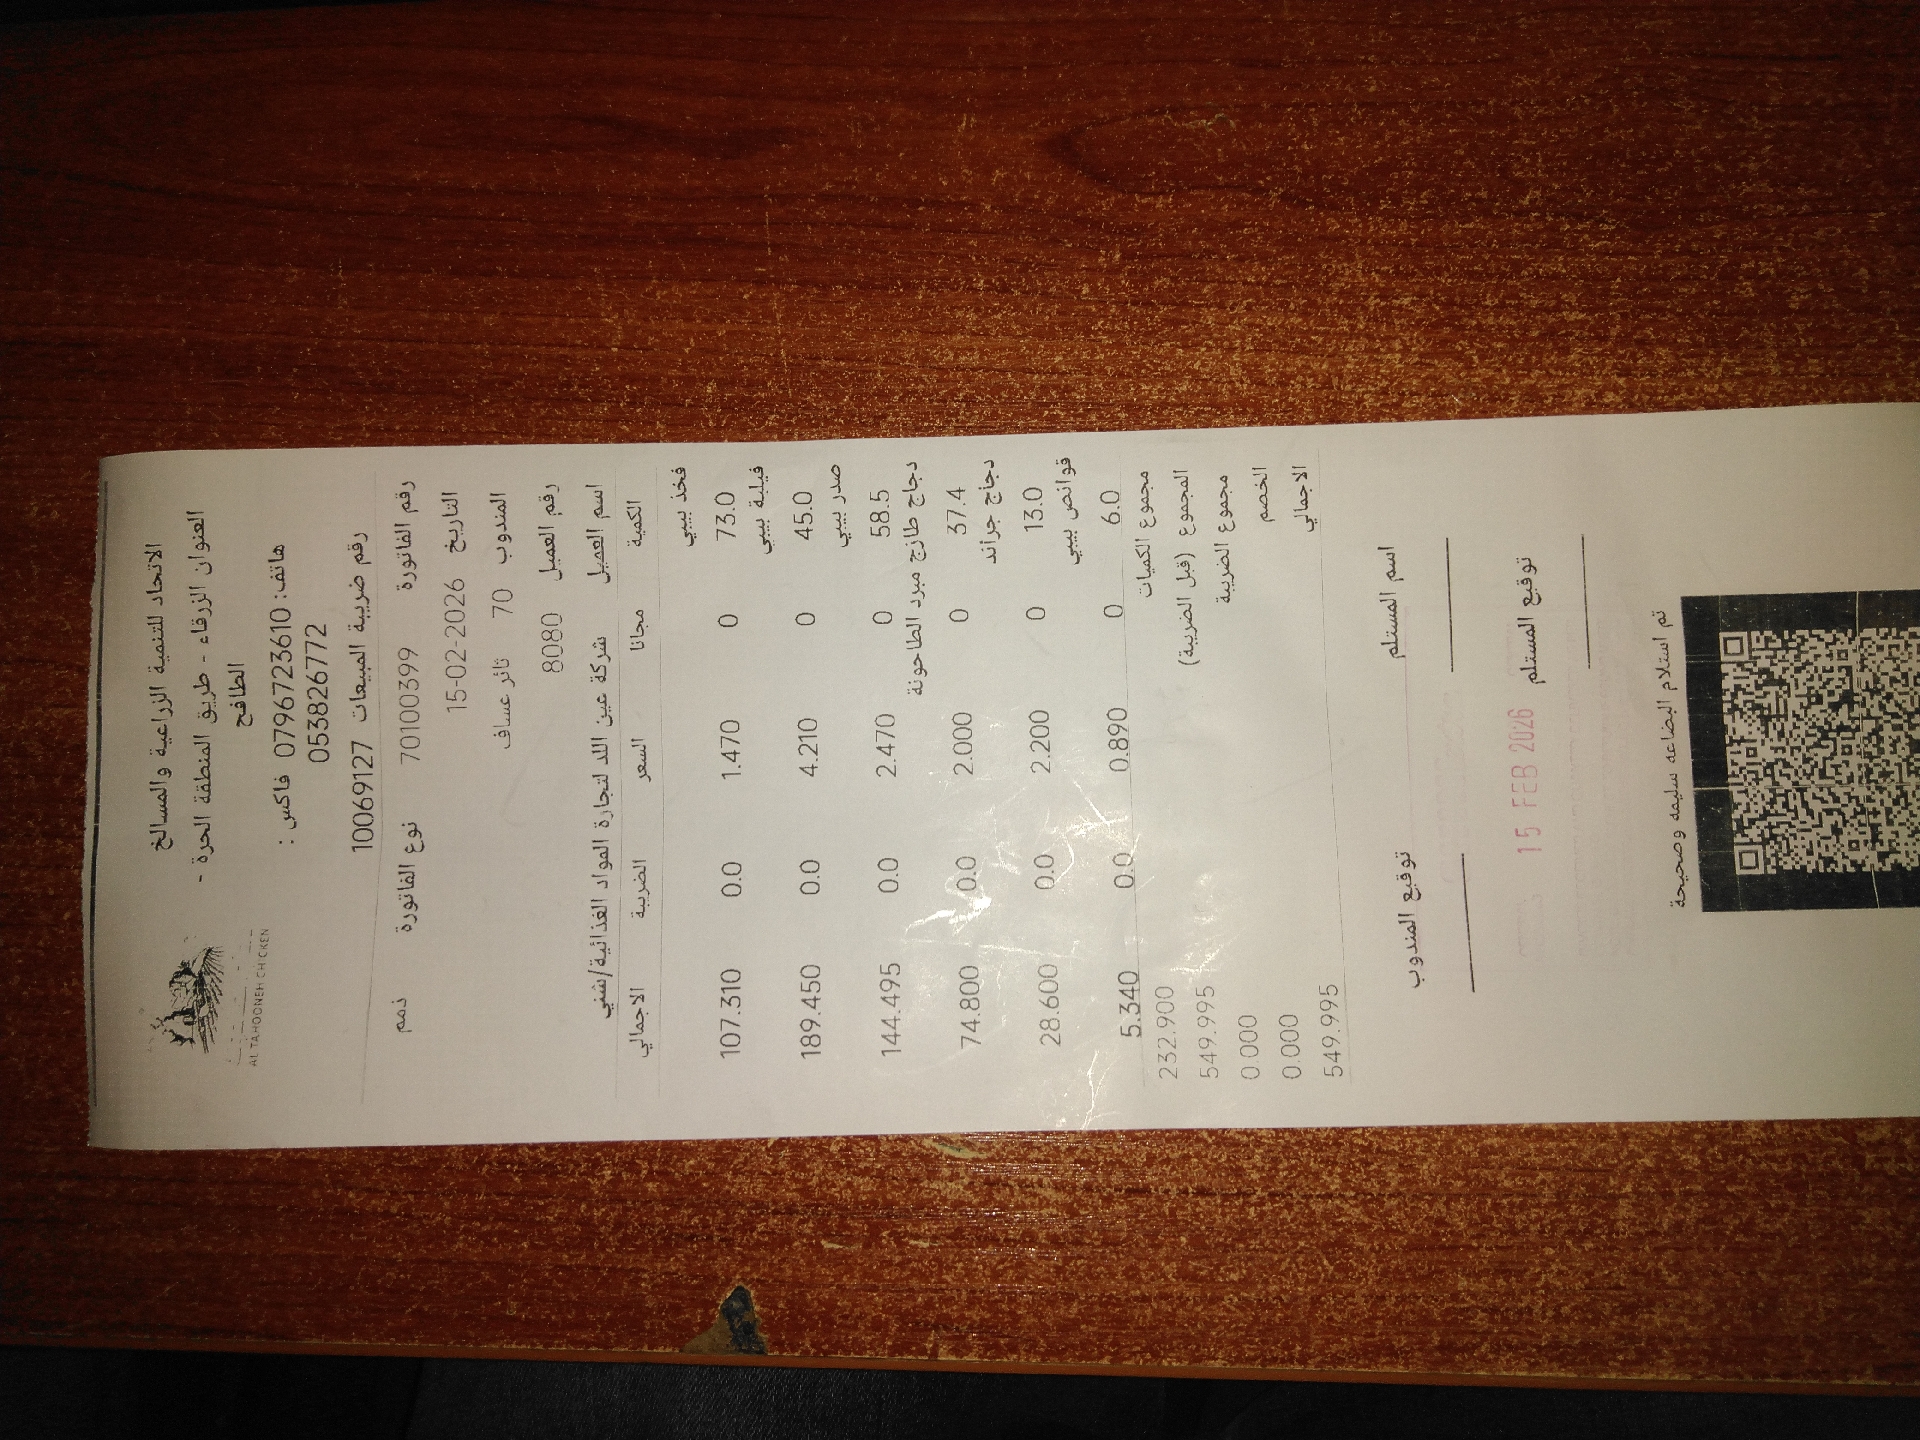 الاتحاد للتنمية الزراعية والمسالخ
العنوان الزرقاء - طريق المنطقة الحرة -
الطافح
هاتف: 0796723610 فاكس :
053826772
رقم ضريبة المبيعات 10069127
AL TAHOONEH CHICKEN
رقم الفاتورة 70100399 نوع الفاتورة ذمم
التاريخ 15-02-2026
المندوب 70 ثائر عساف
رقم العميل 8080
اسم العميل شركة عين اللد لتجارة المواد الغذائية/شني
الكمية مجانا السعر الضريبة الاجمالي
فخذ بيبي
73.0 0 1.470 0.0 107.310
فيلية بيبي
45.0 0 4.210 0.0 189.450
صدر بيبي
58.5 0 2.470 0.0 144.495
دجاج طازج مبرد الطاحونة
37.4 0 2.000 0.0 74.800
دجاج جراند
13.0 0 2.200 0.0 28.600
قوانص بيبي
6.0 0 0.890 0.0 5.340
مجموع الكميات 232.900
المجموع (قبل الضريبة) 549.995
مجموع الضريبة 0.000
الخصم 0.000
الاجمالي 549.995
اسم المستلم توقيع المندوب
15 FEB 2026
توقيع المستلم
تم استلام البضاعه سليمه وصحيحة